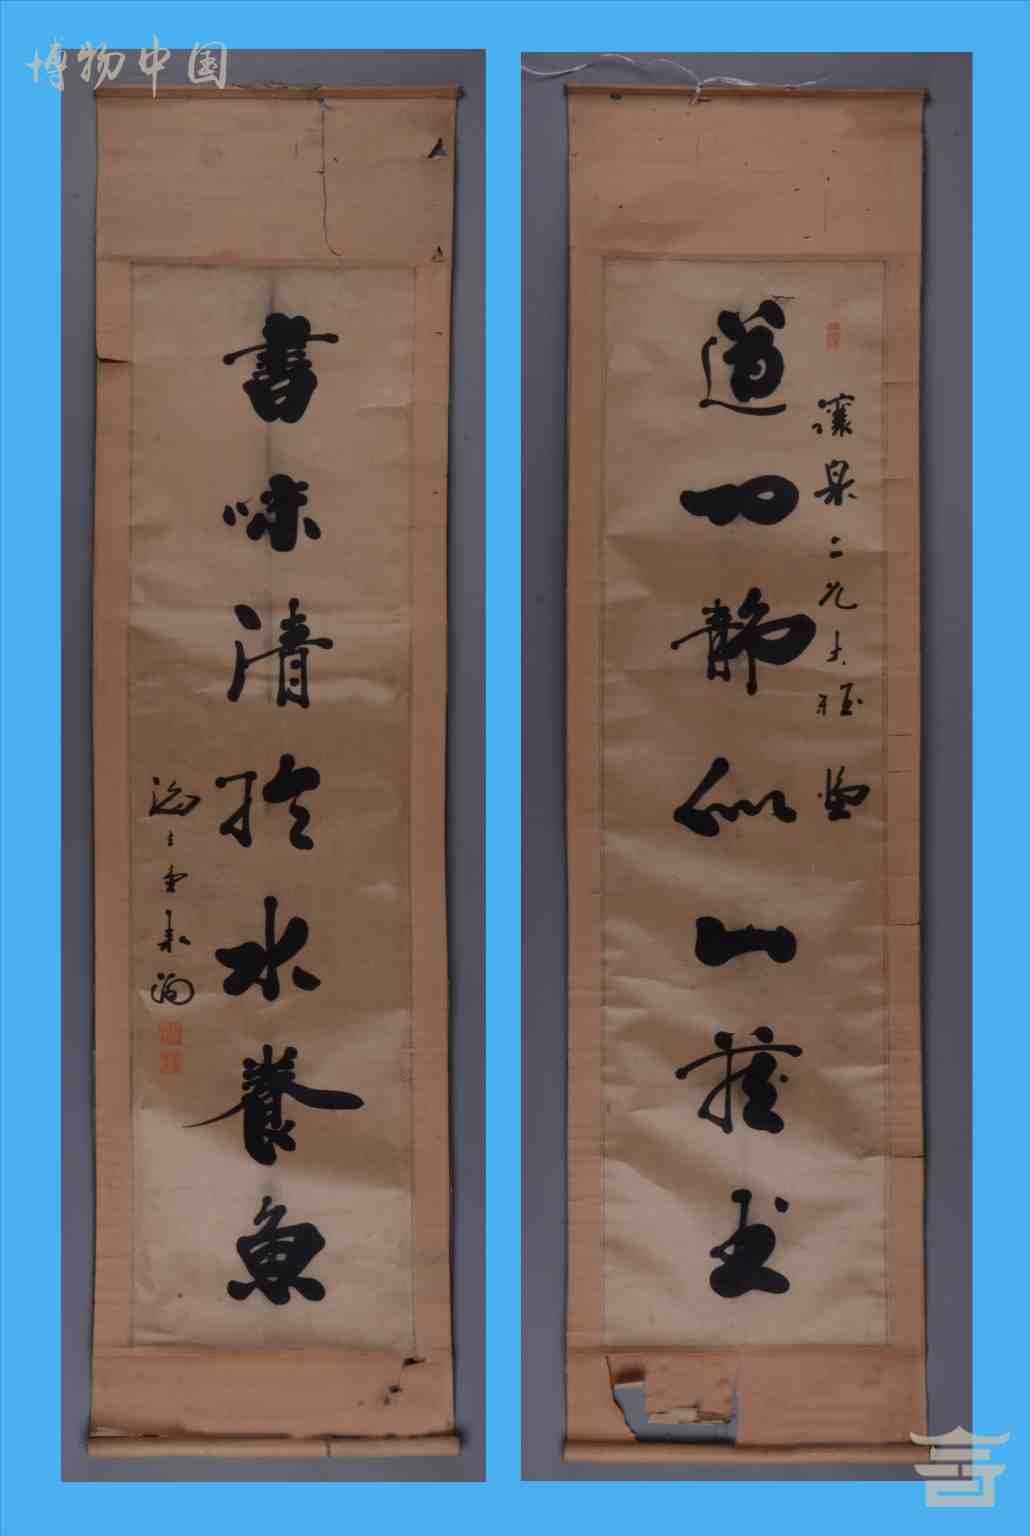 博物中国
道心靜似山藏玉
泉二兄大雅
書味清於水養魚